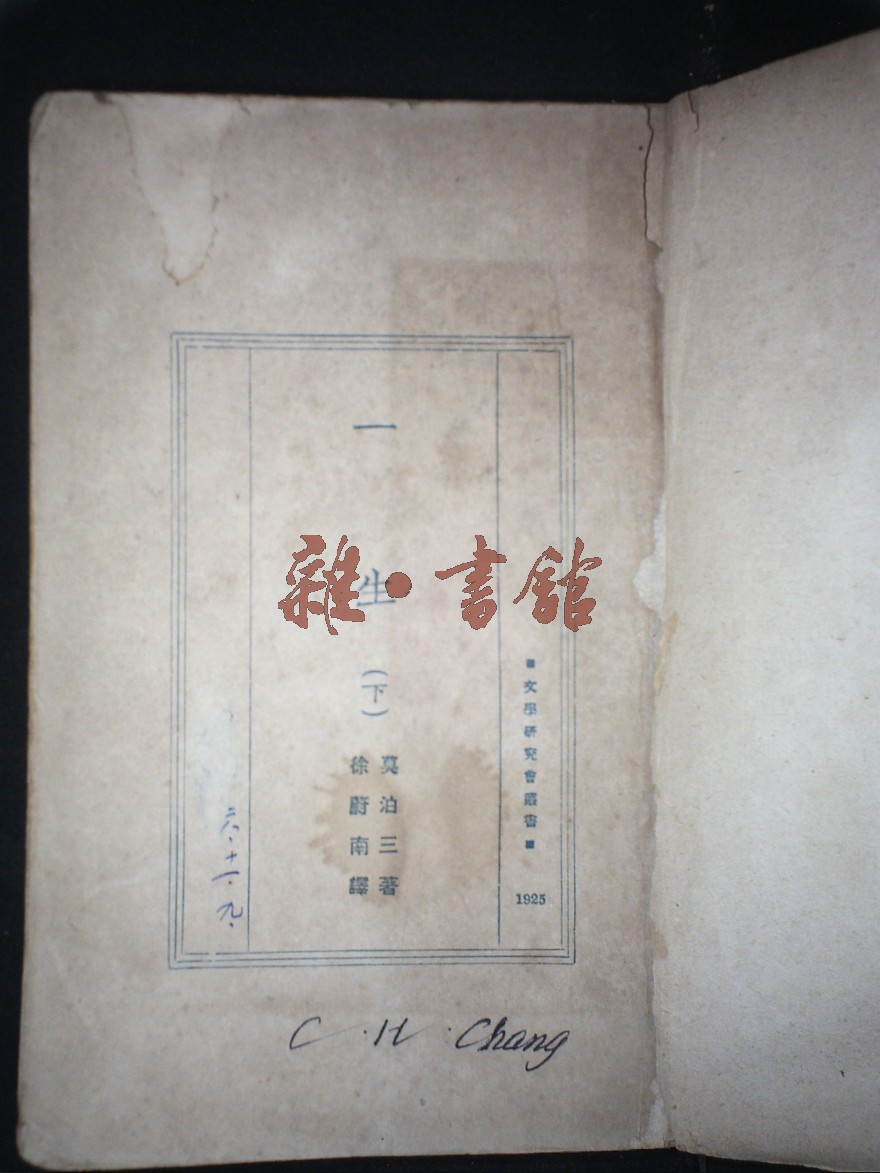 ■文學研究會叢書■
1925
一生(下)
莫泊三著
徐蔚南譯
六·十一·九·
C. H. Chang
雜·書館